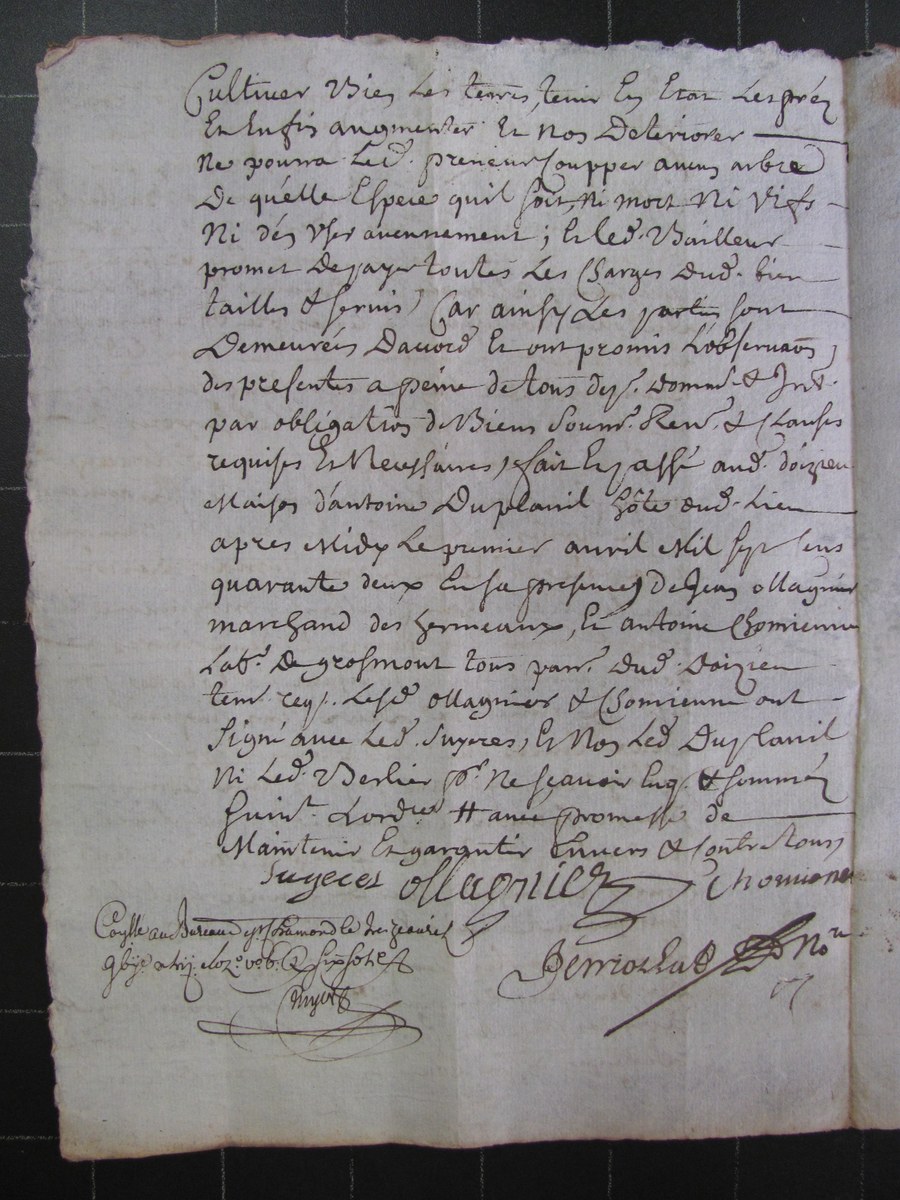 Cultiver Bien les terres, tenir En Etat Les préz
Et Enfin augmenter Et Non Deteriorer
Ne poura Led. preneur Coupper aucun arbre
De quélle Espece quil soit, ni mort Ni Vifs
Ni dén Vser autrennement ; Et led. Bailleur
promet De payer toutes Les Charges Dud. bien
tailles & servis Car ainsy Les parties sont
Demeureés Dacord Et ont promis L'observaon
des presentes a peine de tous dep. domm. & Int.
par obligation de Biens Soum. Ren. & Clauses
requises Et Necessaires, fait Et passé aud. doizieu
Maison d'antoine Duplanil hôte dud. Lieu
apres Midy Le premier auril Mil sept Cens
quarante deux En la presence De Jean ollagnier
marchand des hermeaux, Et antoine Chomienne
Lab.r De grosmont tous par. dud. Doizieu
tem. req. Lesd. ollagnier & Chomienne ont
Signé auec Led. Suyeres, Et Non Led. Duplanil
Ni Led. Verlier pr. Ne Scauoir Enq. & Somméz
Suiv.t Lord.ce # auec promesse de
Maintenir Et garantir Enuers & Contre tous
Suyeres ollagnier Chomienne
au Bureau de St Chamond le
No.re